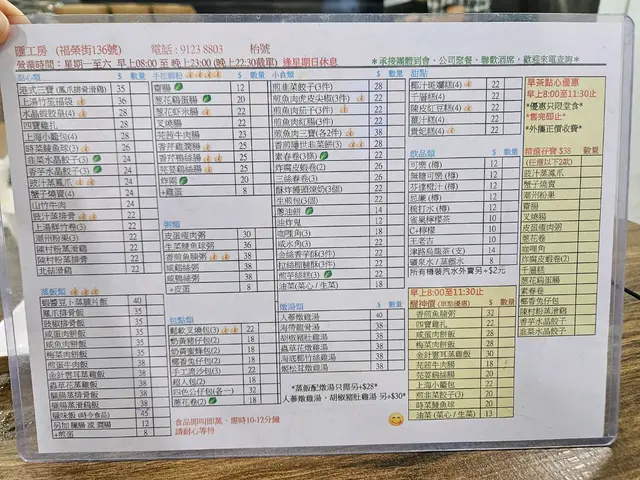 匯工房 (福榮街136號) 電話：9123 8803 枱號
營業時間：星期一至六 早上08:00 至 晚上23:00 (晚上22:30截單) 逢星期日休息
*承接團體到會、公司聚餐、聯歡酒席，歡迎來電查詢*
點心類 $ 數量
港式三寶 (鳳爪排骨滑雞) 35
上湯竹笙福袋 36
水晶蝦餃皇(4) 28
四寶雞扎 28
上海小籠包(4) 28
時菜鯪魚球(3) 26
韭菜水晶餃(3) 24
香芋水晶餃(3) 24
豉汁蒸鳳爪 24
蟹子燒賣(4) 24
山竹牛肉 24
豉汁蒸排骨 22
上湯鮮竹卷(3) 22
潮州粉果(3) 22
陳村粉蒸滑雞 22
陳村粉蒸排骨 22
北菇滑雞 22
蒸飯類
蝦醬豆卜蒸腩片飯 40
鳳爪排骨飯 35
豉椒排骨飯 35
咸蛋肉餅飯 35
咸魚肉餅飯 35
梅菜肉餅飯 35
金針雲耳蒸雞飯 35
蟲草花蒸雞飯 35
臘腸蒸排骨飯 35
臘腸蒸滑雞飯 35
臘味飯 (時令食品) 45
另加 臘腸 或 潤腸 12
+煎蛋 8
手拉腸粉 $ 數量
齋腸 12
蔥花雞蛋腸 20
蔥花蝦米腸 22
叉燒腸 22
芫茜牛肉腸 23
香芹雞潤腸 25
香芹鴨腸腸 25
芫荽雞腸 25
炸兩 20
+雞蛋 8
粥類
皮蛋瘦肉粥 30
生菜鯪魚球粥 36
香煎魚腩粥 38
咸雞絲粥 38
咸豬骨粥 38
+皮蛋 8
包點類
鬆軟叉燒包(3) 22
奶黃豬仔包(2) 18
奶黃蜜蜂包(2) 18
椰香兔仔包(2) 18
手工流沙包(3) 22
超人包(2) 18
四色公仔包(各一) 32
蔥花卷(2) 18
食品即叫即蒸、需時10-12分鐘
請耐心等待
小食類 $ 數量
煎韭菜餃子(3件) 28
煎魚肉虎皮尖椒(3件) 22
煎魚肉茄子(3件) 22
煎魚肉紅腸(3件) 22
煎魚肉三寶(各2件) 38
香煎隱世韭菜餃(3) 28
素春卷(3條) 22
炸腐皮蝦卷(2) 22
三絲春卷(3) 26
酥炸饅頭煉奶(3個) 22
生煎包(3個) 22
蔥油餅 14
油炸鬼 12
咖喱角(3) 18
咸水角(3) 22
金絲香芋酥(3件) 22
拉絲棕櫚酥(3件) 22
煎芋絲餅(3) 22
油菜 (菜心 / 生菜) 18
燉湯類
人蔘燉雞湯 40
海帶龍骨湯 38
胡椒豬肚湯 38
蟲草花燉雞湯 38
海底椰竹絲雞湯 38
姬松茸燉雞湯 38
*蒸飯配燉湯只需另+$28*
人蔘燉雞湯、胡椒豬肚雞湯 另+$30*
甜點 $ 數量
椰汁斑斕糕(4) 22
千層糕(4) 22
陳皮紅豆糕(4) 22
薑汁糕(4) 22
貴妃糕(4) 22
飲品類 $ 數量
可樂 (樽) 12
無糖可樂 (樽) 12
芬達橙汁 (樽) 12
忌廉 (樽) 12
梳打水 (樽) 12
雀巢檸檬茶 10
C+檸檬 10
王老吉 10
津路烏龍茶 (支) 14
礦泉水 / 蒸餾水 8
所有樽裝汽水外賣另+$2元
早上8:00至11:30止
醒神價 (單點優惠) $ 數量
香煎魚腩粥 32
四寶雞扎 23
咸蛋肉餅飯 28
梅菜肉餅飯 28
金針雲耳蒸雞飯 30
芫茜牛肉腸 18
芫荽雞腸 20
上海小籠包 22
煎韭菜餃子(3) 20
時菜鯪魚球 20
油菜 (菜心 / 生菜) 13
早茶點心優惠
早上8:00至11:30止
*優惠只限堂食*
*售完即止*
*外攜正價收費*
精選孖寶 $38 數量
(任選以下2款)
豉汁蒸鳳爪
蟹子燒賣
潮州粉果
齋腸
叉燒腸
皮蛋瘦肉粥
蔥花卷
咖喱角
炸腐皮蝦卷(2)
千層糕
蔥花雞蛋腸
素春卷
椰香兔仔包
陳村粉蒸排骨
香芋水晶餃
韭菜水晶餃子